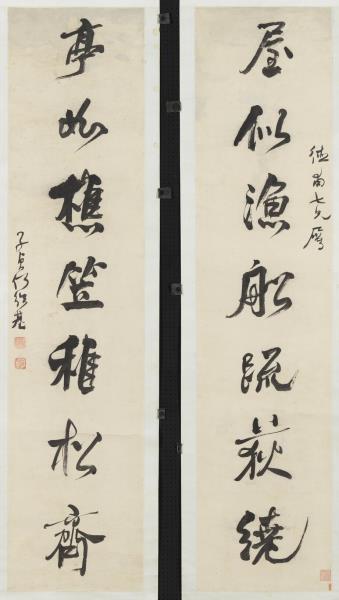 屋似漁船疏荻繞
德甫七兄屬
亭如樵笠稚松齊
子貞何紹基